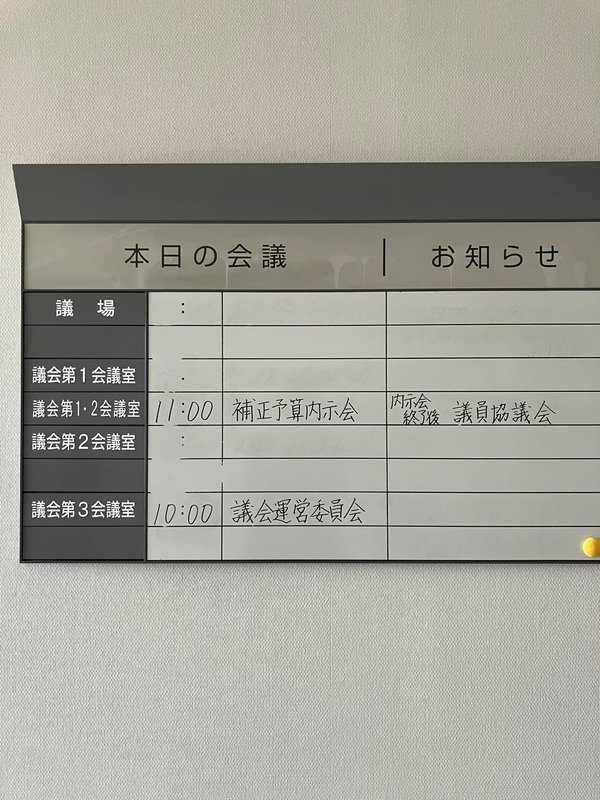 本日の会議 | お知らせ
議 場 :
議会第1会議室 :
議会第1・2会議室 11:00 補正予算内示会 内示会終了後 議員協議会
議会第2会議室 :
議会第3会議室 10:00 議会運営委員会